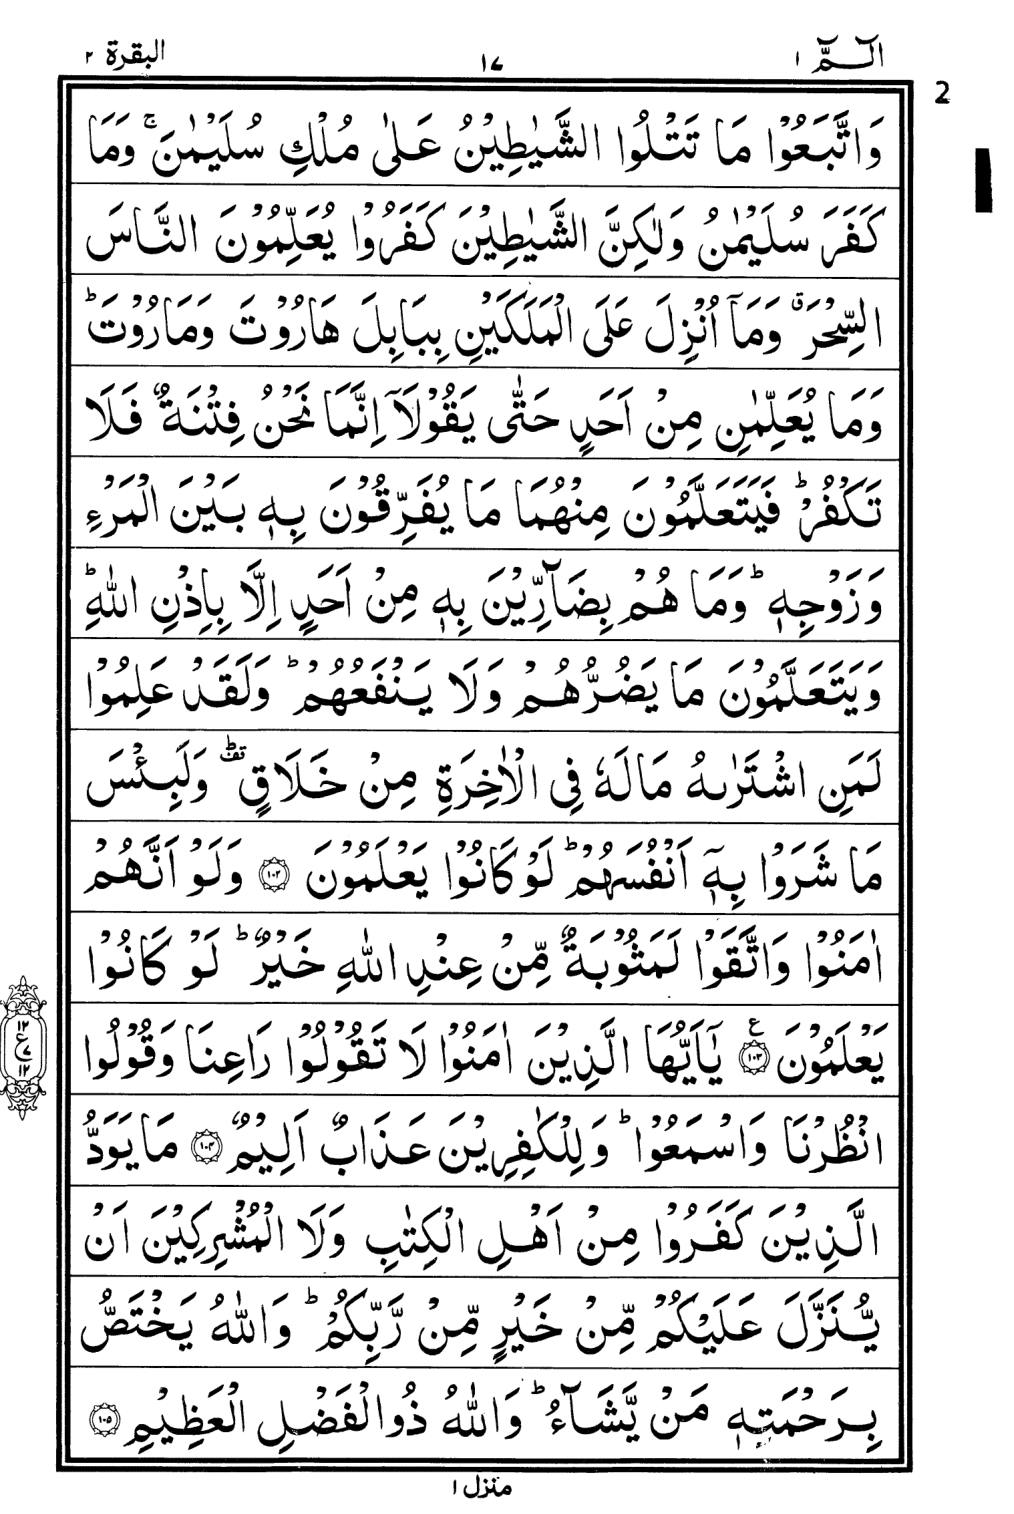 الٓـمّٓ ۱ ۱۷ البقرة ۲
2
وَاتَّبَعُوْا مَا تَتْلُوا الشَّيٰطِيْنُ عَلٰى مُلْكِ سُلَيْمٰنَ ۚ وَمَا
كَفَرَ سُلَيْمٰنُ وَلٰكِنَّ الشَّيٰطِيْنَ كَفَرُوْا يُعَلِّمُوْنَ النَّاسَ
السِّحْرَ ۗ وَمَآ اُنْزِلَ عَلَى الْمَلَكَيْنِ بِبَابِلَ هَارُوْتَ وَمَارُوْتَ ؕ
وَمَا يُعَلِّمٰنِ مِنْ اَحَدٍ حَتّٰى يَقُوْلَاۤ اِنَّمَا نَحْنُ فِتْنَةٌ فَلَا
تَكْفُرْ ؕ فَيَتَعَلَّمُوْنَ مِنْهُمَا مَا يُفَرِّقُوْنَ بِهٖ بَيْنَ الْمَرْءِ
وَزَوْجِهٖ ؕ وَمَا هُمْ بِضَآرِّيْنَ بِهٖ مِنْ اَحَدٍ اِلَّا بِاِذْنِ اللّٰهِ ؕ
وَيَتَعَلَّمُوْنَ مَا يَضُرُّهُمْ وَلَا يَنْفَعُهُمْ ؕ وَلَقَدْ عَلِمُوْا
لَمَنِ اشْتَرٰىهُ مَا لَهٗ فِى الْاٰخِرَةِ مِنْ خَلَاقٍ ؕقف وَلَبِئْسَ
مَا شَرَوْا بِهٖۤ اَنْفُسَهُمْ ؕ لَوْ كَانُوْا يَعْلَمُوْنَ ﴿۱۰۲﴾ وَلَوْ اَنَّهُمْ
اٰمَنُوْا وَاتَّقَوْا لَمَثُوْبَةٌ مِّنْ عِنْدِ اللّٰهِ خَيْرٌ ؕ لَوْ كَانُوْا
يَعْلَمُوْنَ ﴿۱۰۳﴾ ع يٰۤاَيُّهَا الَّذِيْنَ اٰمَنُوْا لَا تَقُوْلُوْا رَاعِنَا وَقُوْلُوا
۱۲
ع ۷
۱۲
انْظُرْنَا وَاسْمَعُوْا ؕ وَلِلْكٰفِرِيْنَ عَذَابٌ اَلِيْمٌ ﴿۱۰۴﴾ مَا يَوَدُّ
الَّذِيْنَ كَفَرُوْا مِنْ اَهْلِ الْكِتٰبِ وَلَا الْمُشْرِكِيْنَ اَنْ
يُّنَزَّلَ عَلَيْكُمْ مِّنْ خَيْرٍ مِّنْ رَّبِّكُمْ ؕ وَاللّٰهُ يَخْتَصُّ
بِرَحْمَتِهٖ مَنْ يَّشَآءُ ؕ وَاللّٰهُ ذُو الْفَضْلِ الْعَظِيْمِ ﴿۱۰۵﴾
منزل ۱